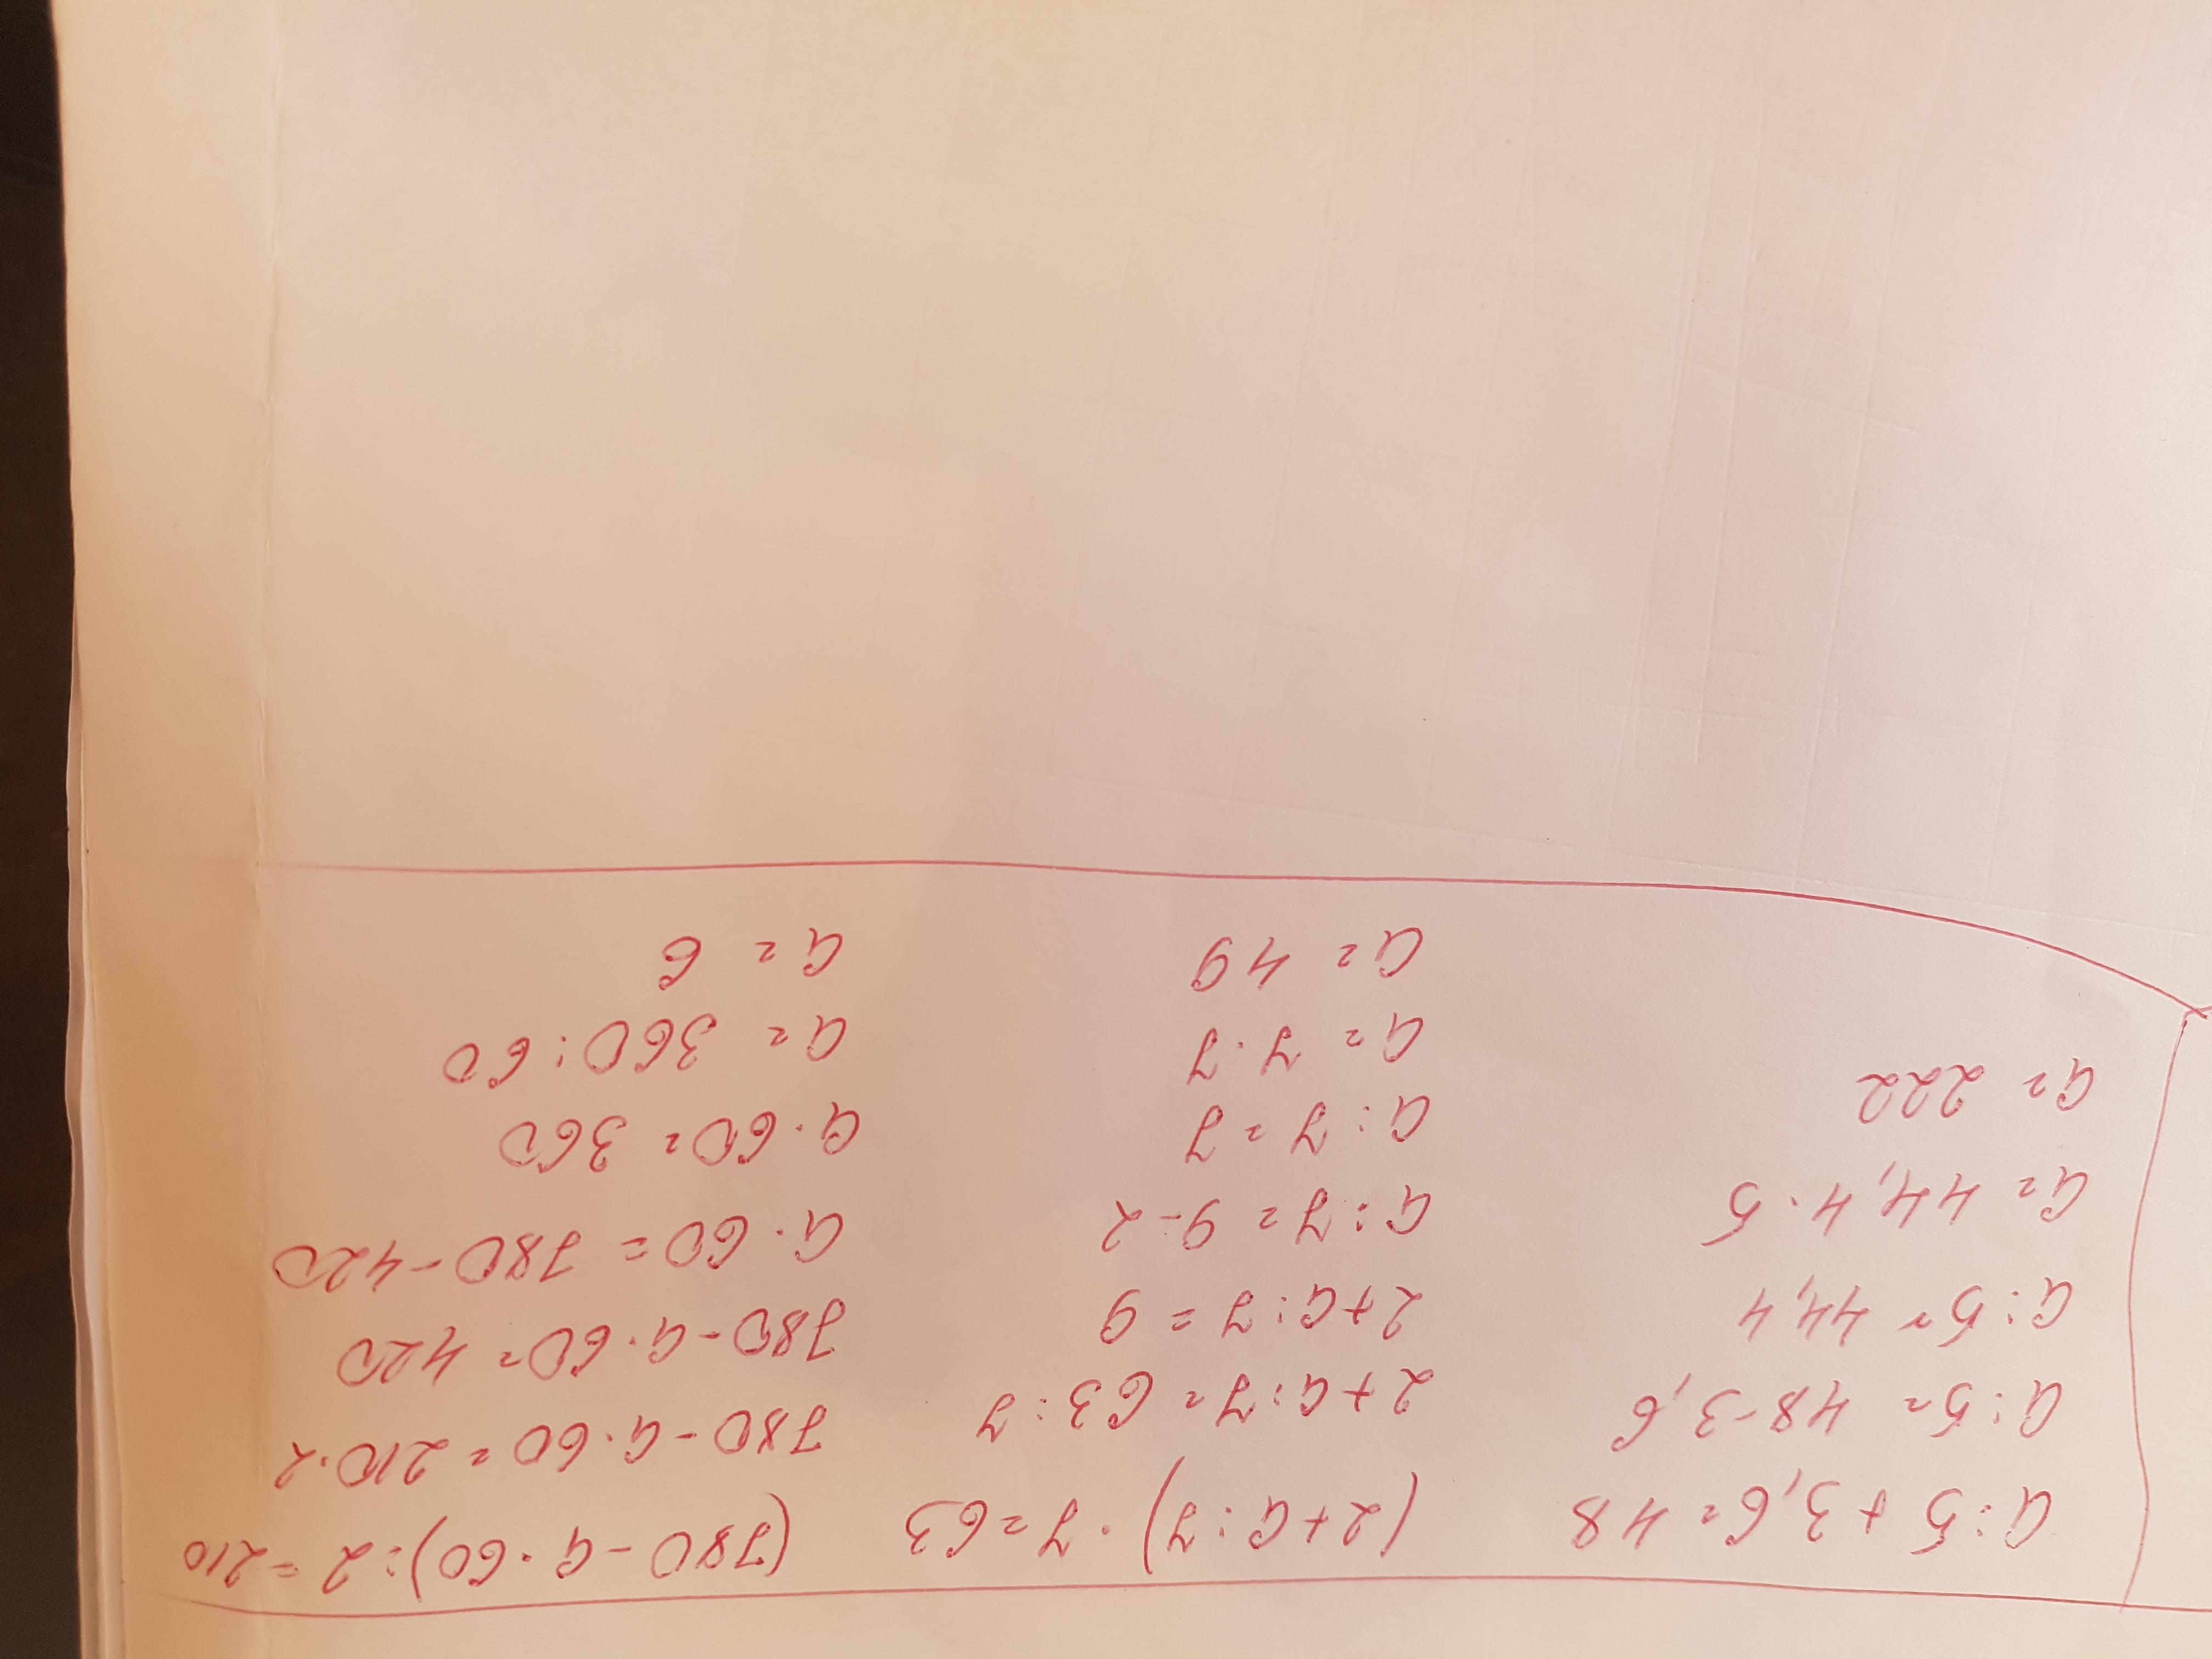 a:5 + 3,6 = 48
a:5 = 48-3,6
a:5 = 44,4
a = 44,4 · 5
a = 222
(2+a:7) · 7 = 63
2+a:7 = 63:7
2+a:7 = 9
a:7 = 9-2
a:7 = 7
a = 7·7
a = 49
(780-a·60):2 = 210
780-a·60 = 210·2
780-a·60 = 420
a·60 = 780-420
a·60 = 360
a = 360:60
a = 6